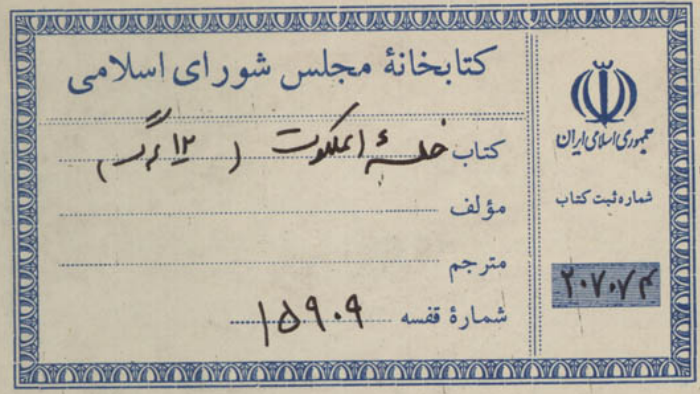 کتابخانهٔ مجلس شورای اسلامی
کتاب خلسهٔ الملکوت (۱۲ برگ)
مؤلف
مترجم
شمارهٔ قفسه ۱۵۹۰۹
جمهوری اسلامی ایران
شماره ثبت کتاب
۲۰۷۰۷۴